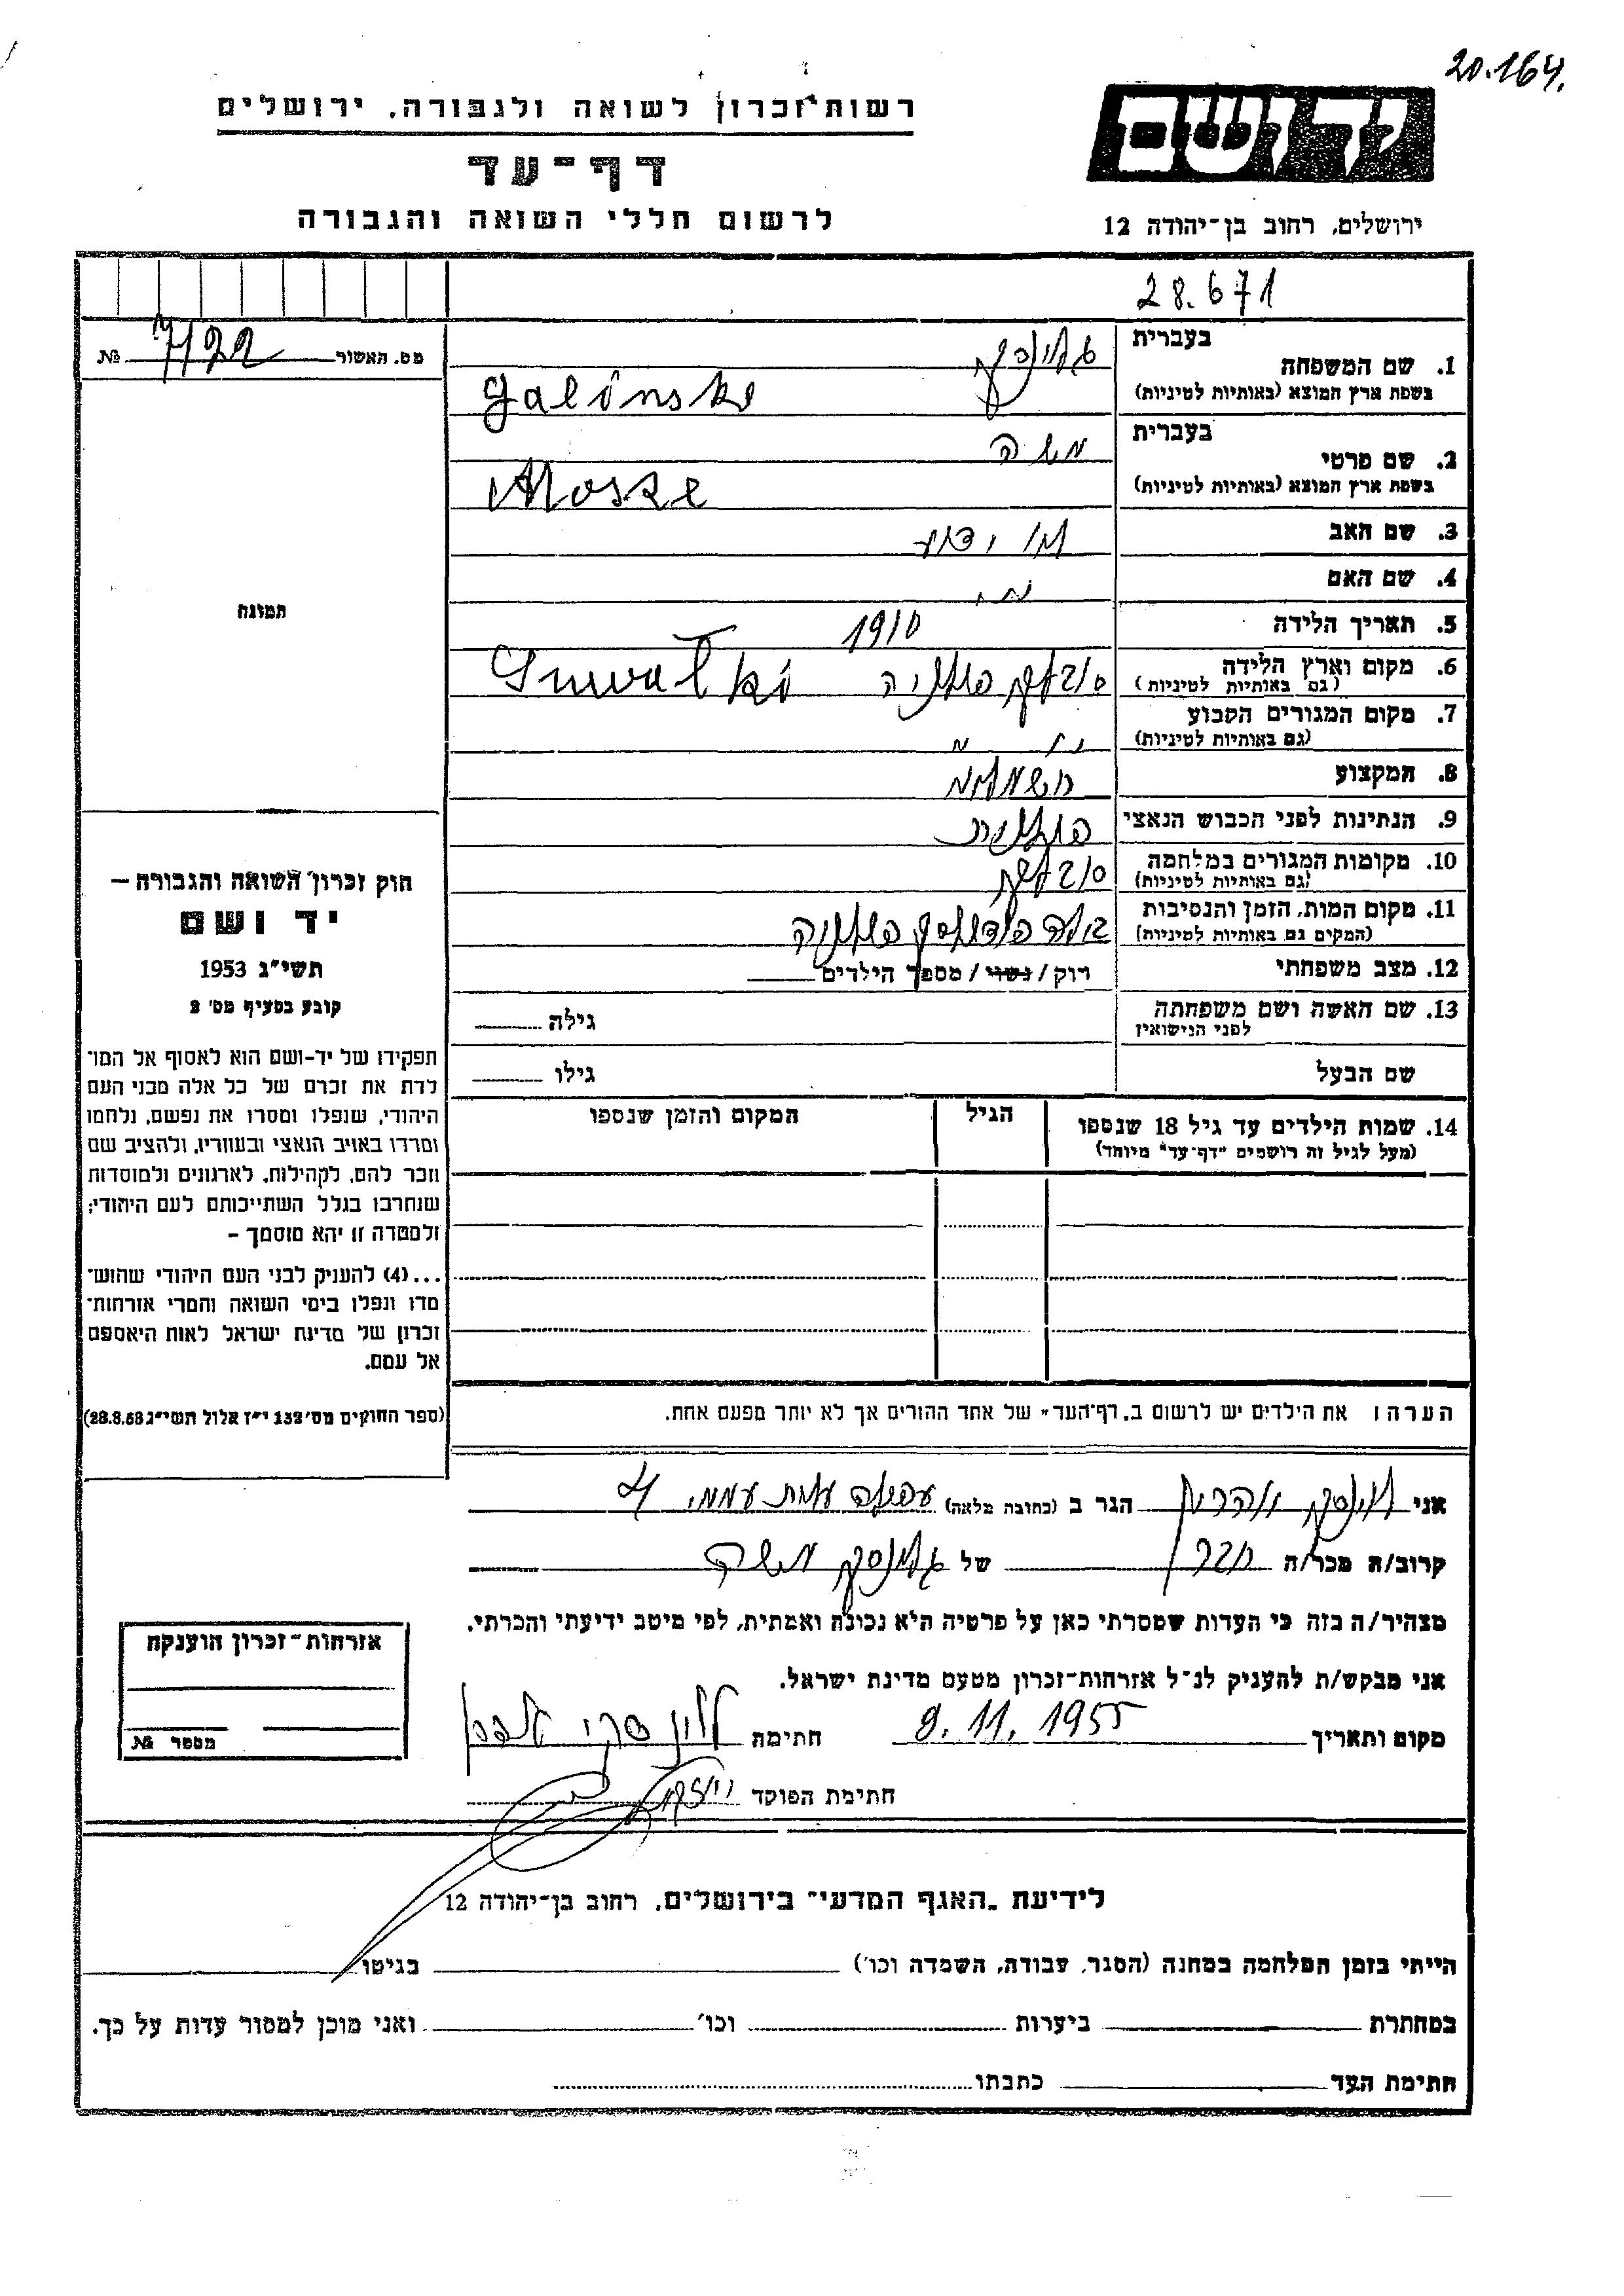 20.164.
רשות־זכרון לשואה ולגבורה, ירושלים
יד ושם
דף־עד
לרשום חללי השואה והגבורה
ירושלים, רחוב בן־יהודה 12
28.671
מס. האשור № 7122
בעברית
1. שם המשפחה
בשפת ארץ המוצא (באותיות לטיניות) Galinski
בעברית משה
2. שם פרטי
בשפת ארץ המוצא (באותיות לטיניות) Mosze
3. שם האב לא ידוע
4. שם האם
5. תאריך הלידה 1910
6. מקום וארץ הלידה סובלקי פולניה Suwałki
(גם באותיות לטיניות)
7. מקום המגורים הקבוע
(גם באותיות לטיניות)
8. המקצוע חשמלאי
9. הנתינות לפני הכבוש הנאצי פולנית
10. מקומות המגורים במלחמה סובלקי
(גם באותיות לטיניות)
11. מקום המות, הזמן והנסיבות פולניה
(המקום גם באותיות לטיניות)
12. מצב משפחתי רוק / נשוי / מספר הילדים
13. שם האשה ושם משפחתה גילה
לפני הנישואין
שם הבעל גילו
14. שמות הילדים עד גיל 18 שנספו הגיל המקום והזמן שנספו
(מעל לגיל זה רושמים "דף־עד" מיוחד)
הערה: את הילדים יש לרשום ב"דף־העד" של אחד ההורים אך לא יותר מפעם אחת.
תמונה
חוק זכרון השואה והגבורה –
יד ושם
תשי"ג 1953
קובע בסעיף מס' 2
תפקידו של יד-ושם הוא לאסוף אל המו־
לדת את זכרם של כל אלה מבני העם
היהודי, שנפלו ומסרו את נפשם, נלחמו
ומרדו באויב הנאצי ובעוזריו, ולהציב שם
וזכר להם, לקהילות, לארגונים ולמוסדות
שנחרבו בגלל השתייכותם לעם היהודי;
ולמטרה זו יהא מוסמך –
...(4) להעניק לבני העם היהודי שהוש־
מדו ונפלו בימי השואה והמרי אזרחות־
זכרון של מדינת ישראל לאות היאספם
אל עמם.
(ספר החוקים מס' 132 י"ז אלול תשי"ג 28.8.53)
אני הגר ב (כתובת מלאה) עפולה
קרוב/ה מכר/ה חבר של גלינסקי משה
מצהיר/ה בזה כי העדות שמסרתי כאן על פרטיה היא נכונה ואמתית, לפי מיטב ידיעתי והכרתי.
אני מבקש/ת להעניק לנ"ל אזרחות־זכרון מטעם מדינת ישראל.
מקום ותאריך 9.11.1955 חתימה
חתימת הפוקד
אזרחות־זכרון הוענקה
מספר №
לידיעת "האגף המדעי" בירושלים, רחוב בן־יהודה 12
הייתי בזמן המלחמה במחנה (הסגר, עבודה, השמדה וכו') בגיטו
במחתרת ביערות וכו' ואני מוכן למסור עדות על כך.
חתימת העד כתבתו